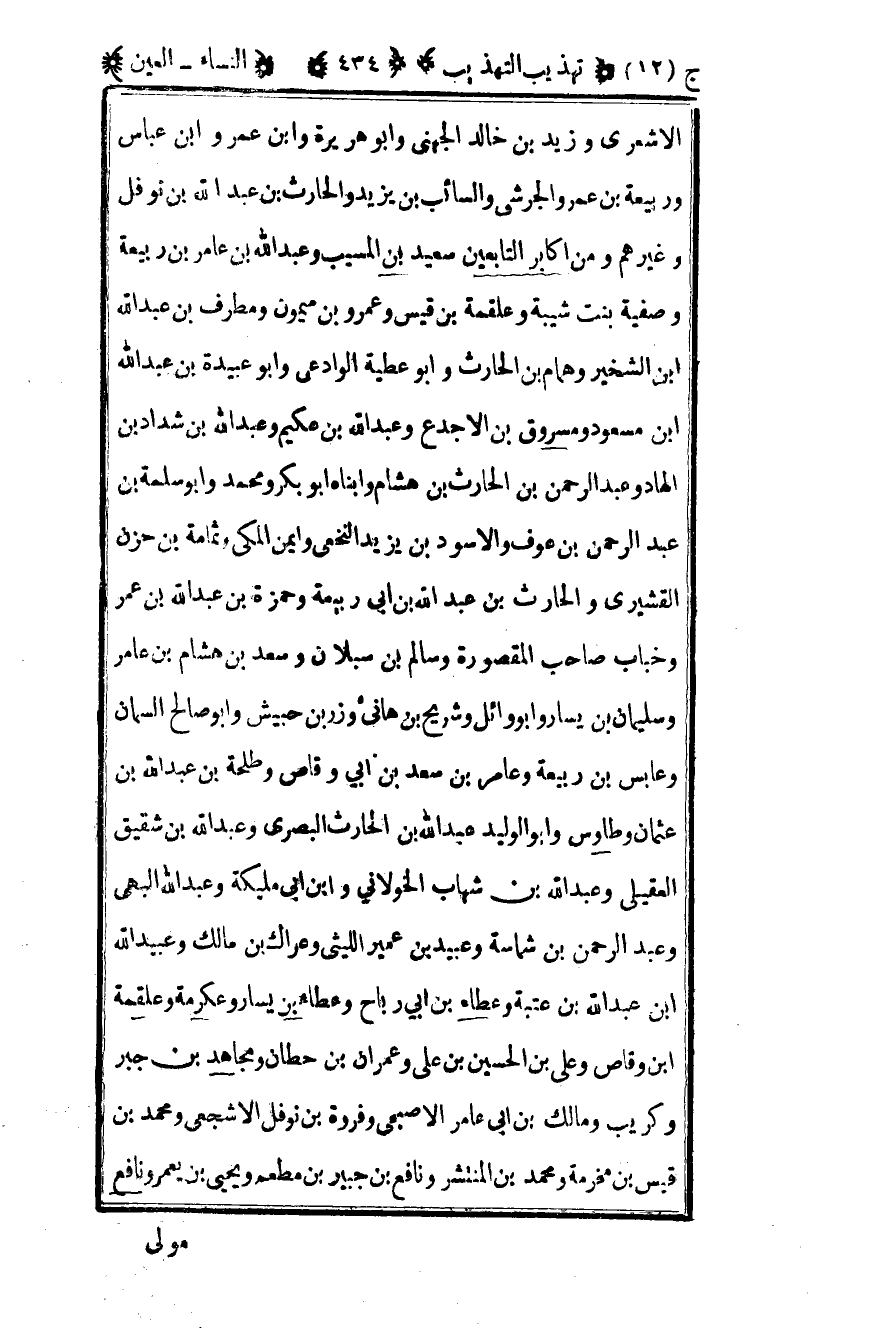 ج (١٢) تهذيب التهذيب ٤٣٤ النساء - العين
الاشعرى و زيد بن خالد الجهنى وابو هريرة وابن عمر و ابن عباس
وربيعة بن عمرو الجرشى والسائب بن يزيد والحارث بن عبد الله بن نوفل
و غيرهم و من اكابر التابعين سعيد بن المسيب وعبدالله بن عامر بن ربيعة
و صفية بنت شيبة وعلقمة بن قيس وعمرو بن ميمون ومطرف بن عبدالله
ابن الشخير وهمام بن الحارث و ابو عطية الوادعى وابو عبيدة بن عبدالله
ابن مسعود ومسروق بن الاجدع وعبدالله بن عكيم وعبدالله بن شداد بن
الهاد وعبدالرحمن بن الحارث بن هشام وابناه ابو بكر ومحمد وابو سلمة بن
عبد الرحمن بن عوف والاسود بن يزيد النخعى وايمن المكى وثمامة بن حزن
القشيرى و الحارث بن عبد الله بن ابى ربيعة وحمزة بن عبدالله بن عمر
وخباب صاحب المقصورة وسالم بن سبلان و سعد بن هشام بن عامر
وسليمان بن يسار وابو وائل وشريح بن هانئ وزر بن حبيش وابو صالح السمان
وعابس بن ربيعة وعامر بن سعد بن ابي وقاص وطلحة بن عبدالله بن
عثمان وطاوس وابو الوليد عبدالله بن الحارث البصرى وعبدالله بن شقيق
العقيلى وعبدالله بن شهاب الخولاني و ابن ابى مليكة وعبدالله البهى
وعبد الرحمن بن شماسة وعبيد بن عمير الليثى وعراك بن مالك وعبيدالله
ابن عبدالله بن عتبة وعطاء بن ابي رباح وعطاء بن يسار وعكرمة وعلقمة
ابن وقاص وعلى بن الحسين بن على وعمران بن حطان ومجاهد بن جبر
وكريب ومالك بن ابى عامر الاصبحى وفروة بن نوفل الاشجعى ومحمد بن
قيس بن مخرمة ومحمد بن المنتشر ونافع بن جبير بن مطعم ويحيى بن يعمر ونافع
مولى